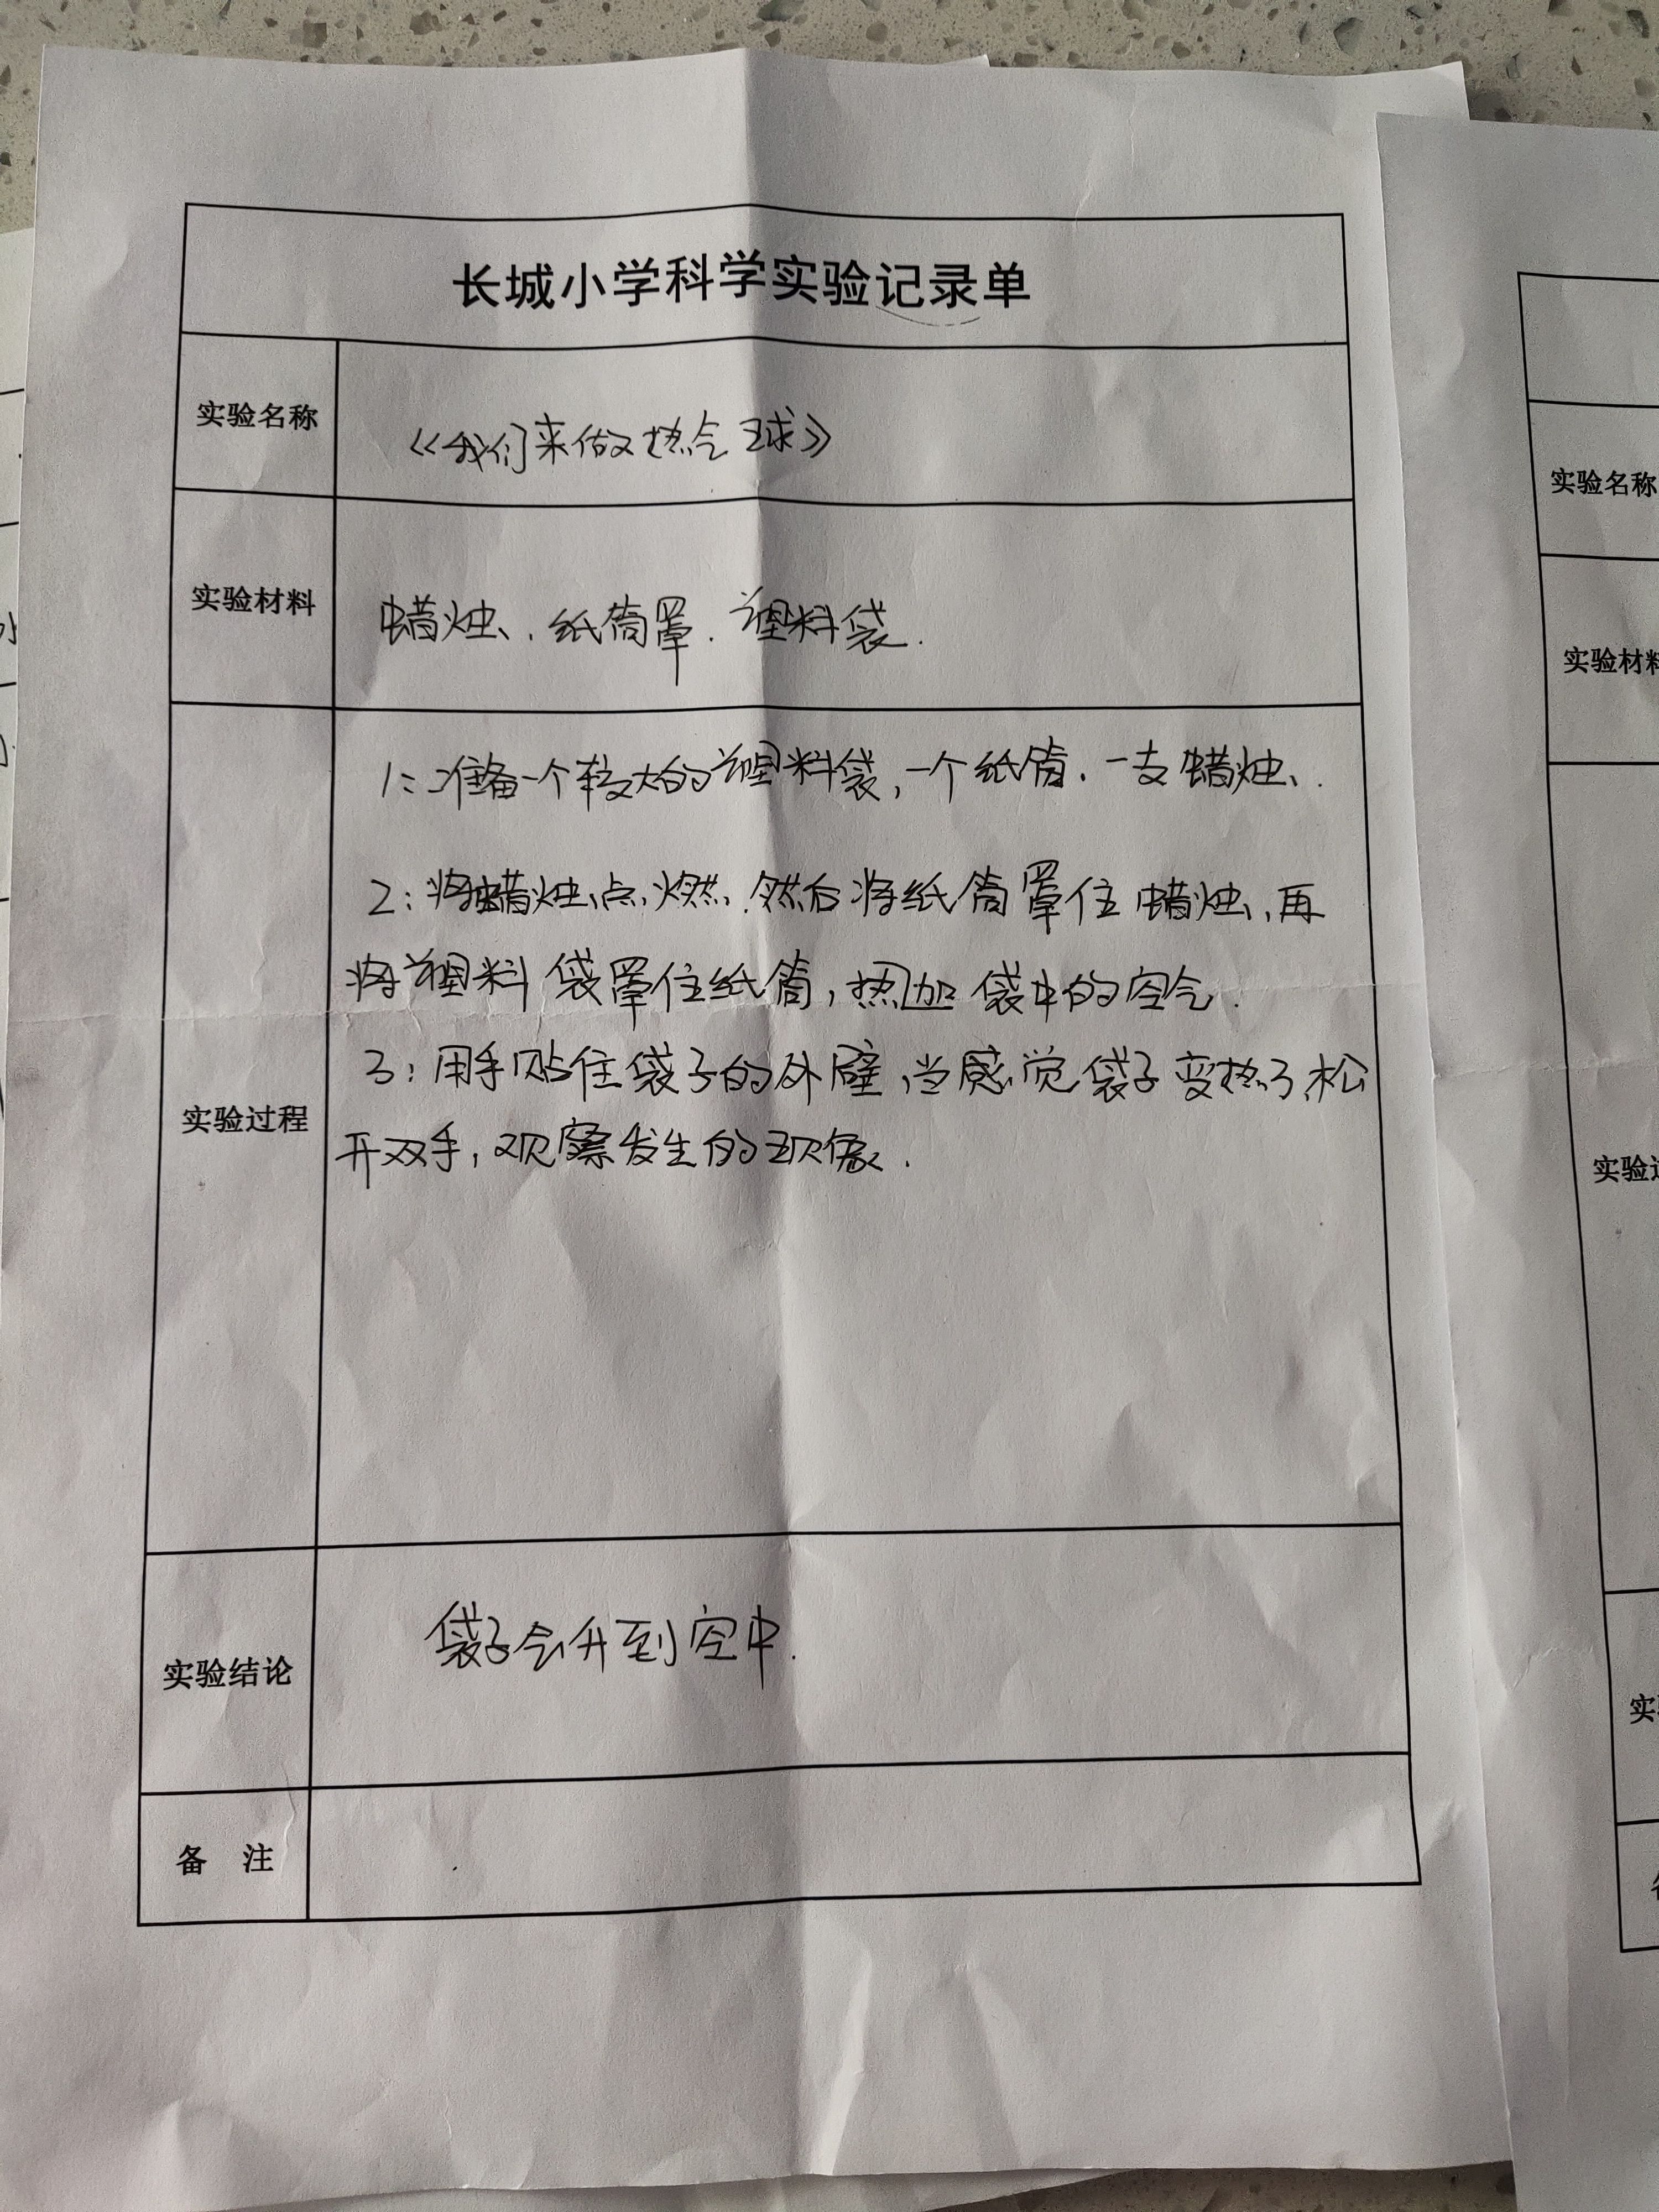 长城小学科学实验记录单
实验名称
《我们来做热气球》
实验材料
蜡烛、纸筒罩.塑料袋.
实验过程
1:准备一个较大的塑料袋,一个纸筒.一支蜡烛.
2:将蜡烛点燃.然后将纸筒罩住蜡烛,再
将塑料袋罩住纸筒,热加袋中的空气.
3:用手贴住袋子的外壁,当感觉袋子变热了,松
开双手,观察发生的现象.
实验结论
袋子会升到空中.
备 注
实验名称
实验材料
实验